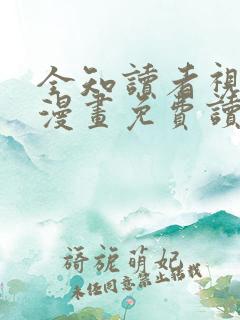 全知讀者視
漫畫免費讀
旖旎萌妃
未經同意禁止轉載